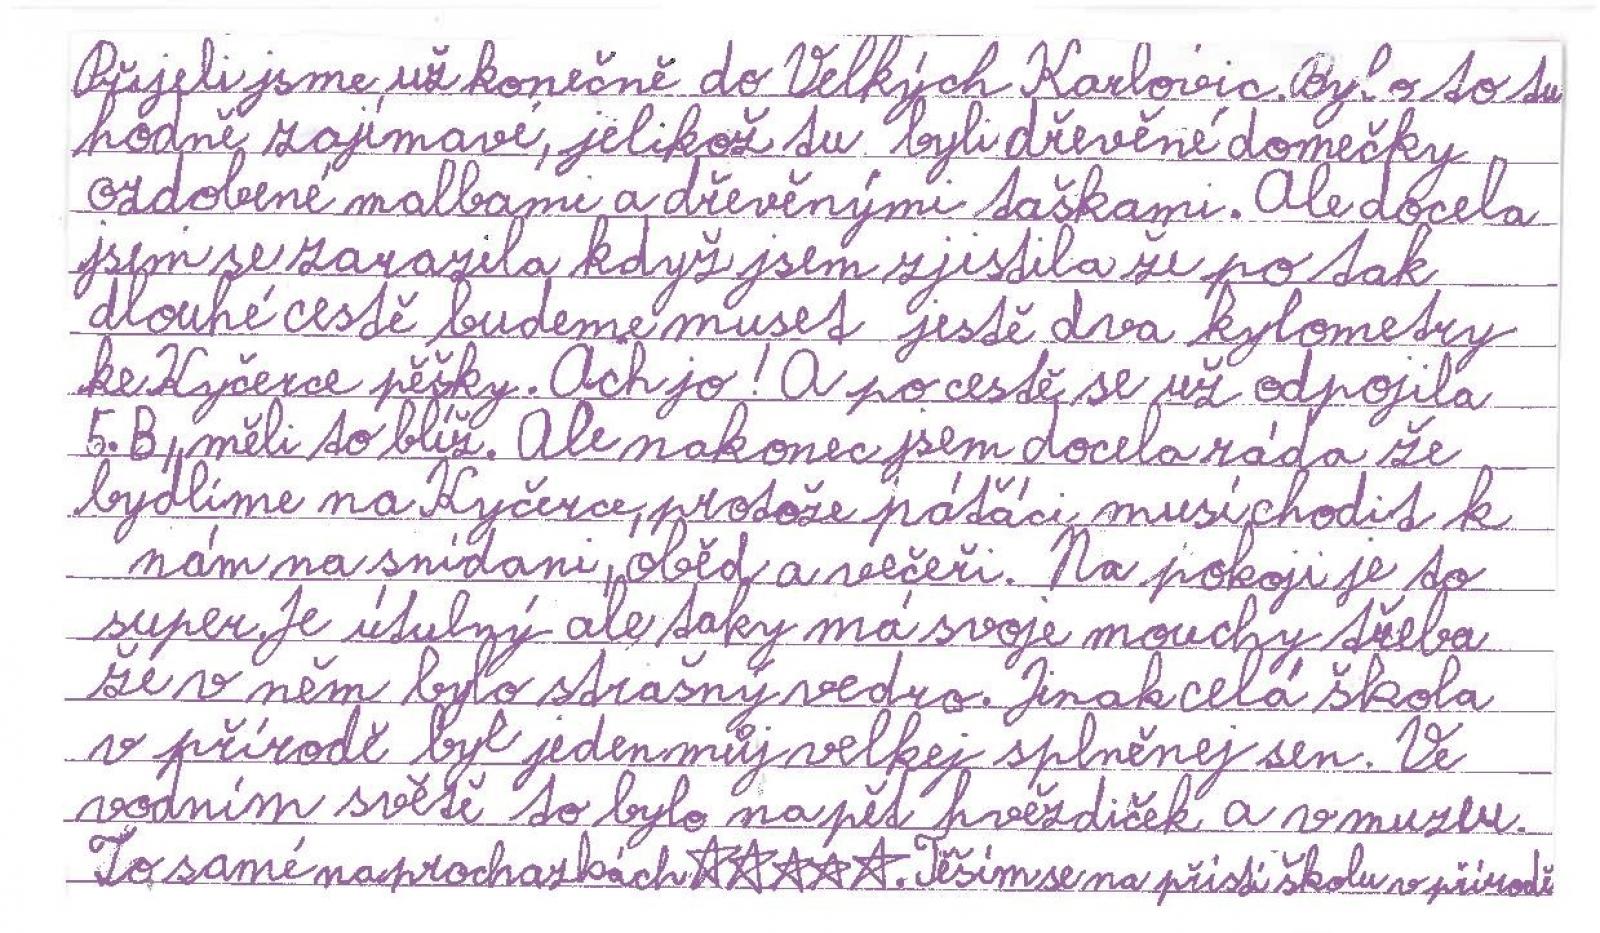 Přijeli jsme už konečně do Velkých Karlovic. Bylo to tu
hodně zajímavé, jelikož tu byli dřevěné domečky
ozdobené malbami a dřevěnými taškami. Ale docela
jsem se zarazila když jsem zjistila že po tak
dlouhé cestě budeme muset jestě dva kylometry
ke Kyčerce pěšky. Ach jo! A po cestě se už odpojila
5. B, měli to blíž. Ale nakonec jsem docela ráda že
bydlíme na Kyčerce, protože páťáci musí chodit k
nám na snídani, oběd a večeři. Na pokoji je to
super. Je útulný ale taky má svoje mouchy třeba
že v něm bylo strašný vedro. Jinak celá škola
v přírodě byl jeden můj velkej splněnej sen. Ve
vodním světě to bylo na pět hvězdiček a v muzeu.
To samé na prochazkách ☆☆☆☆☆. Těším se na přístí školu v přírodě